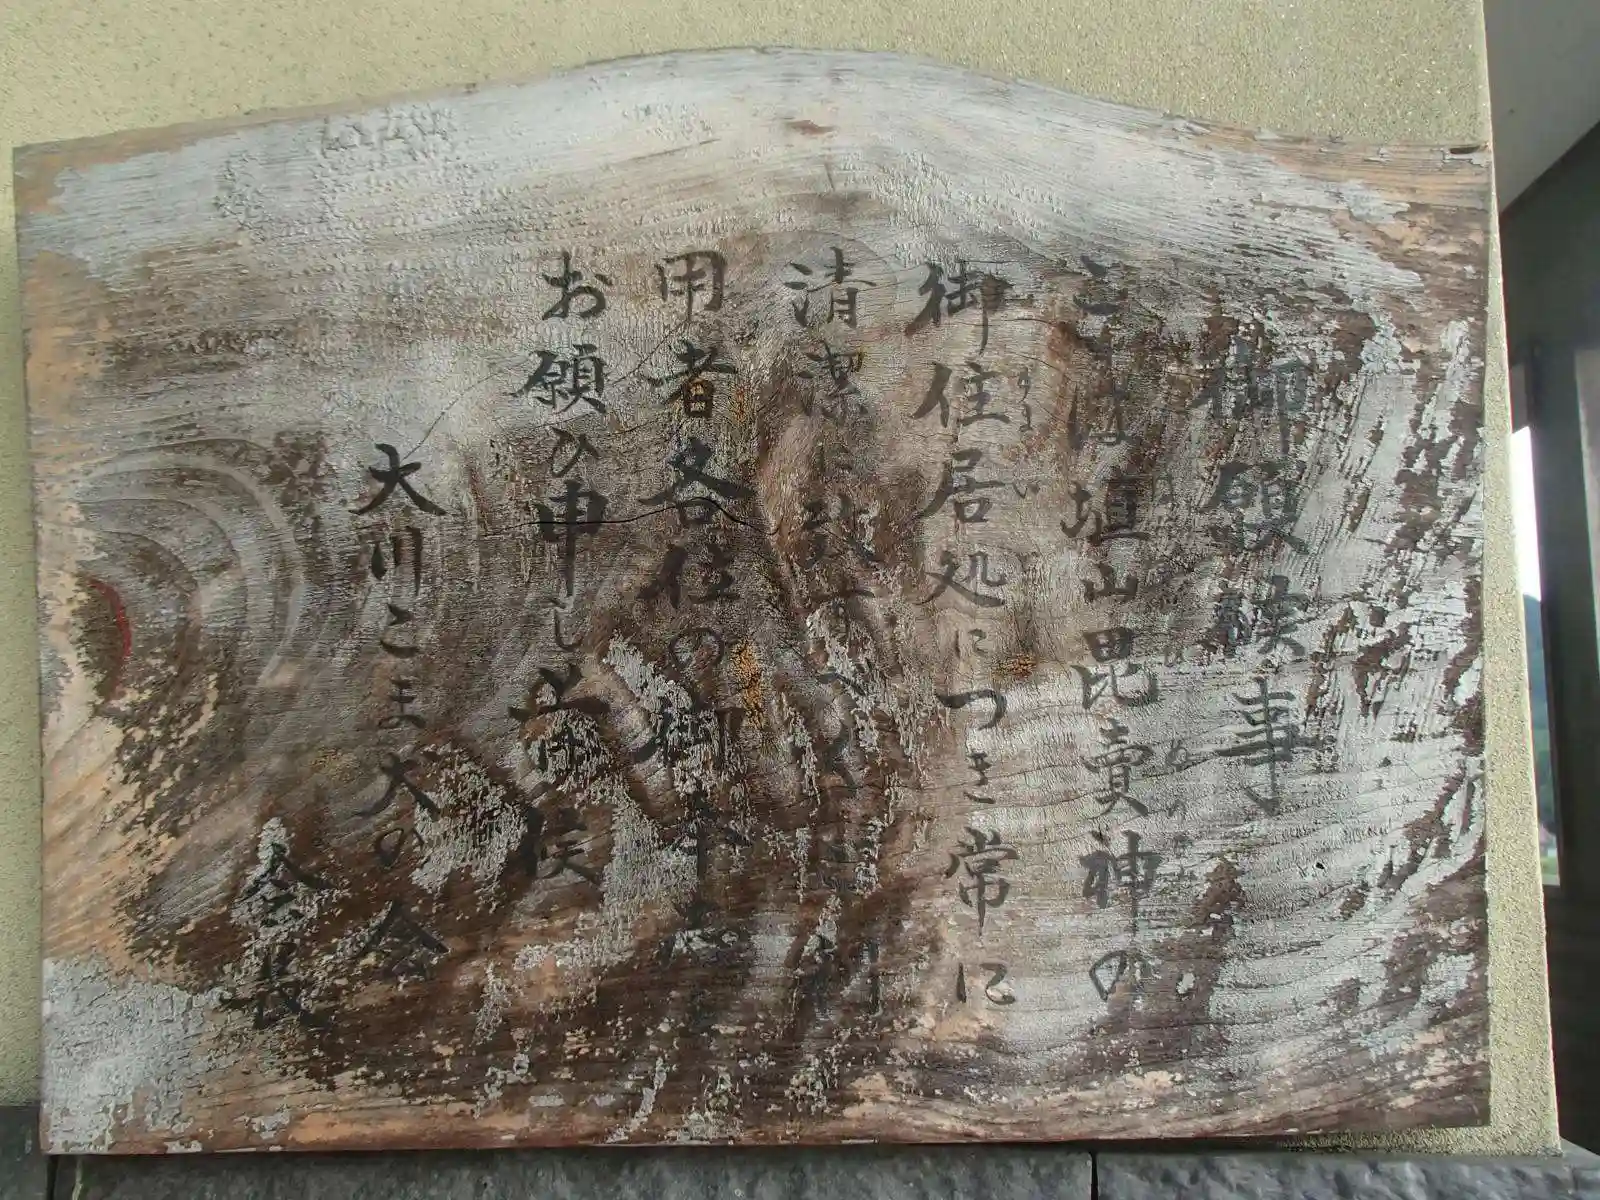 御願候事
ここは埴山毘賣神の
御住居処につき常に
清潔に致すべく
用者各位の御
お願ひ申し上候
大川こま犬の会
会長